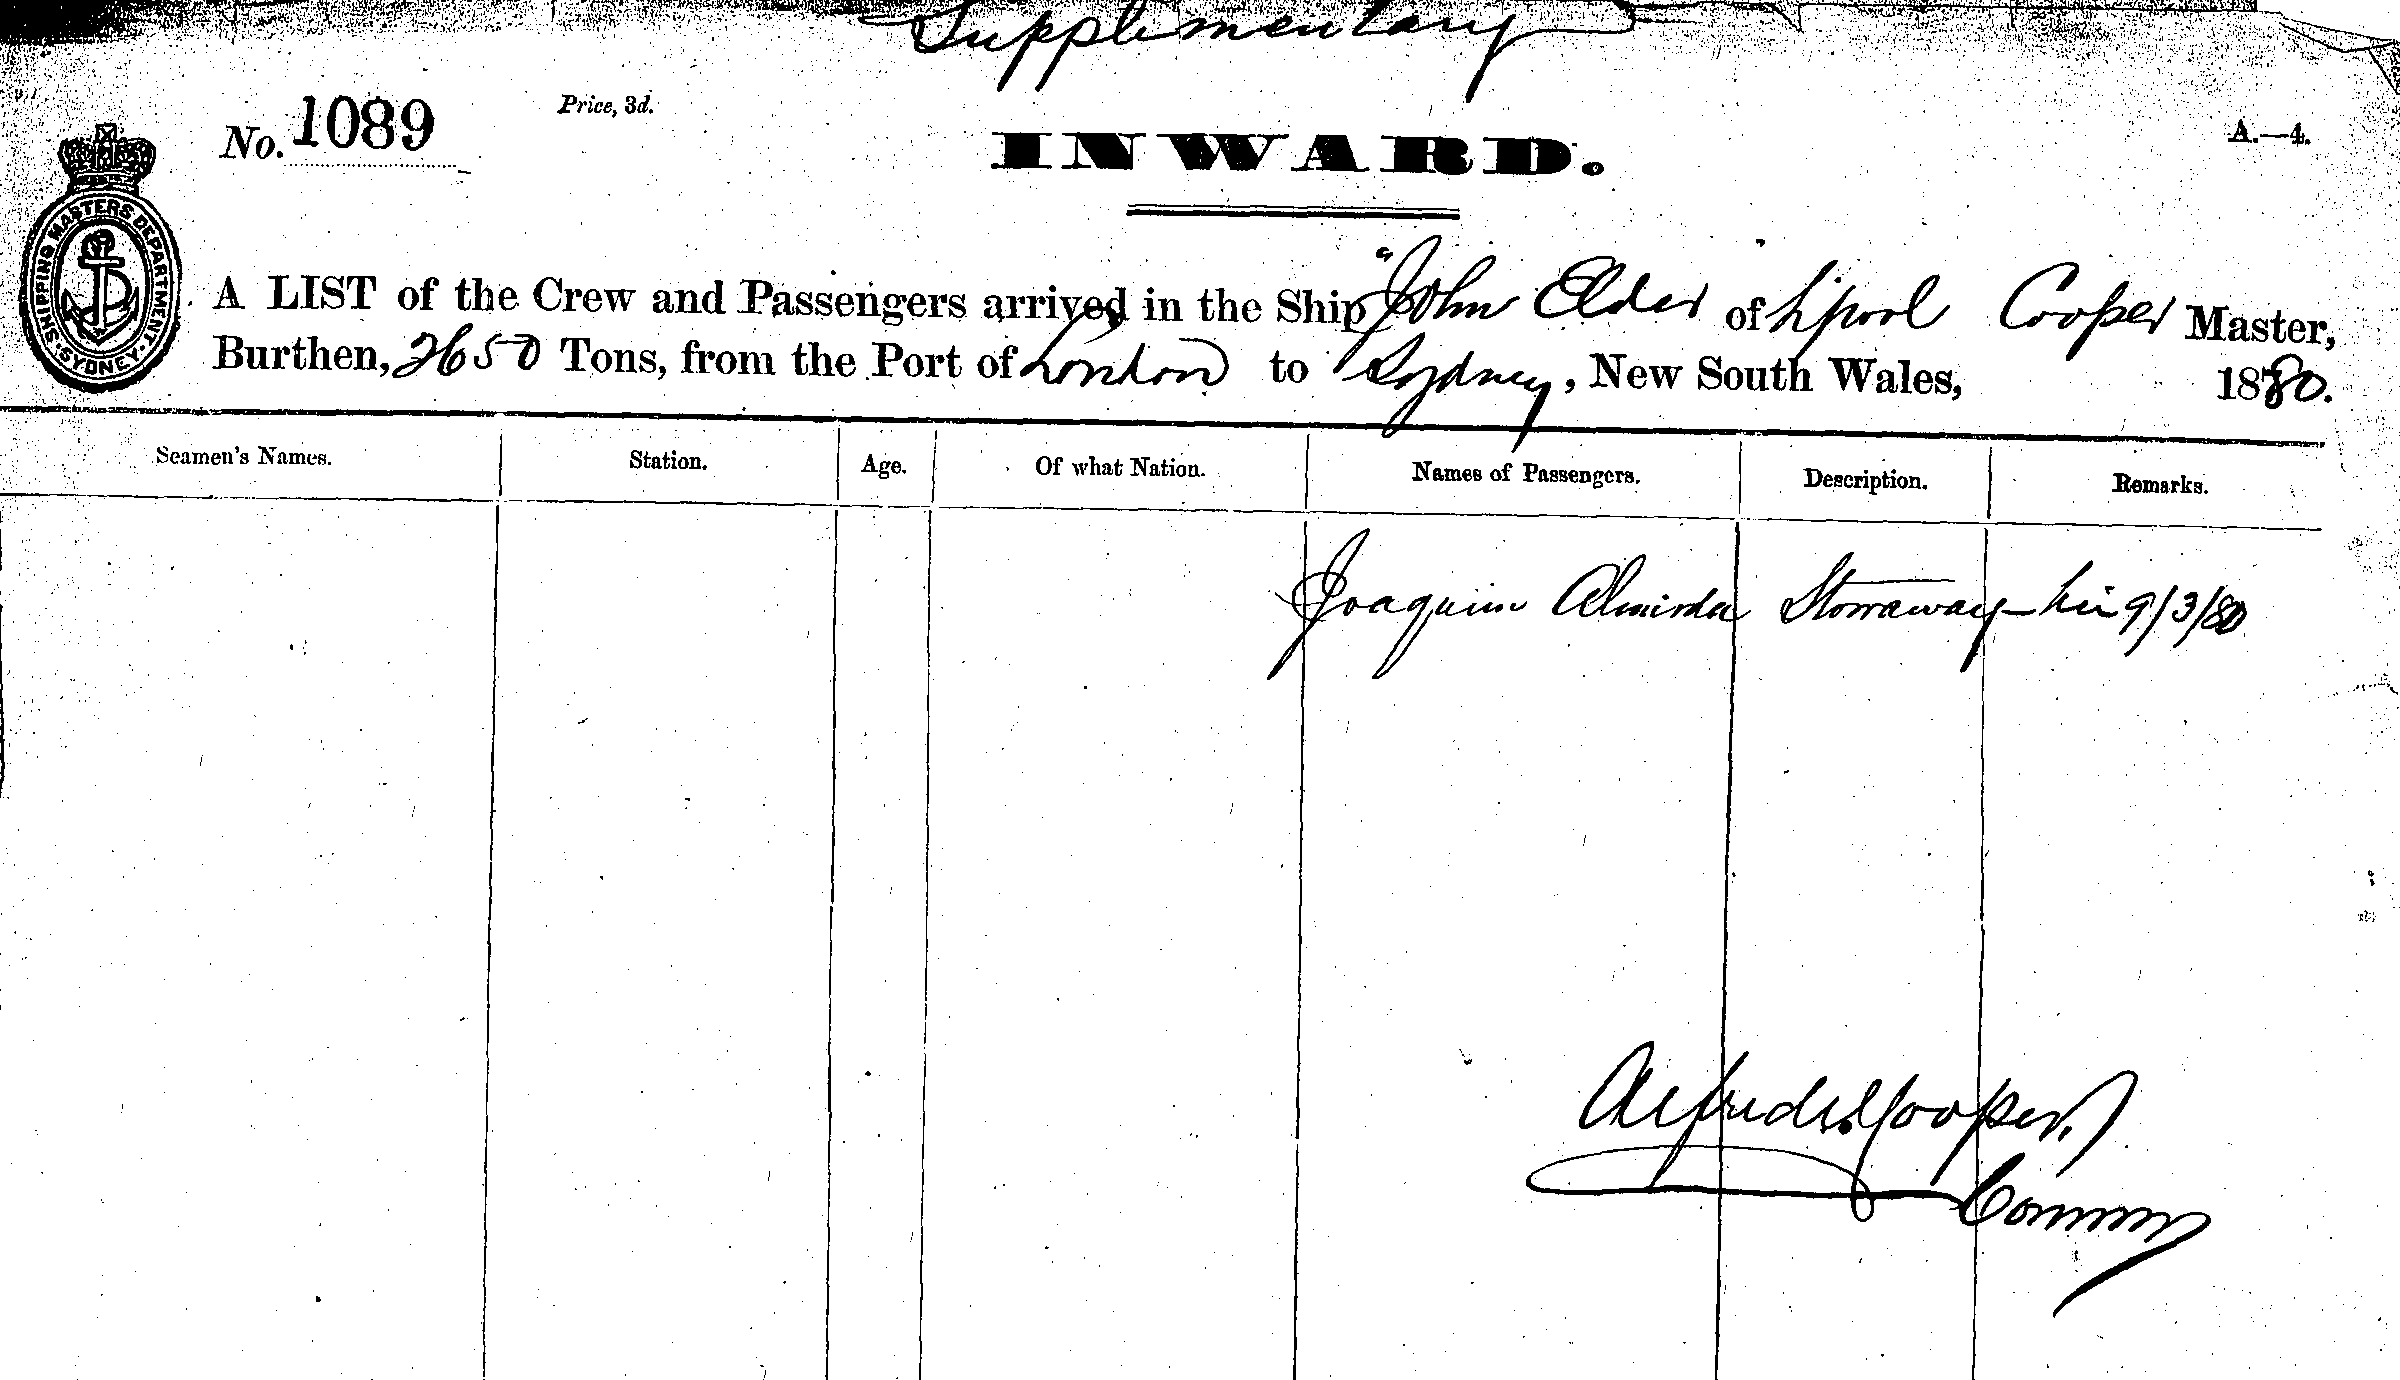 Supplementary
No. 1089 Price, 3d. A.—4.
INWARD.
SHIPPING MASTERS DEPARTMENT. SYDNEY.
A LIST of the Crew and Passengers arrived in the Ship "John Elder of L'pool Cooper Master,
Burthen, 2650 Tons, from the Port of London to Sydney, New South Wales, 1880.
Seamen's Names. Station. Age. Of what Nation. Names of Passengers. Description. Remarks.
Joaquim Almeida Stowaway 9/3/80
Alfred Cooper.
Comm